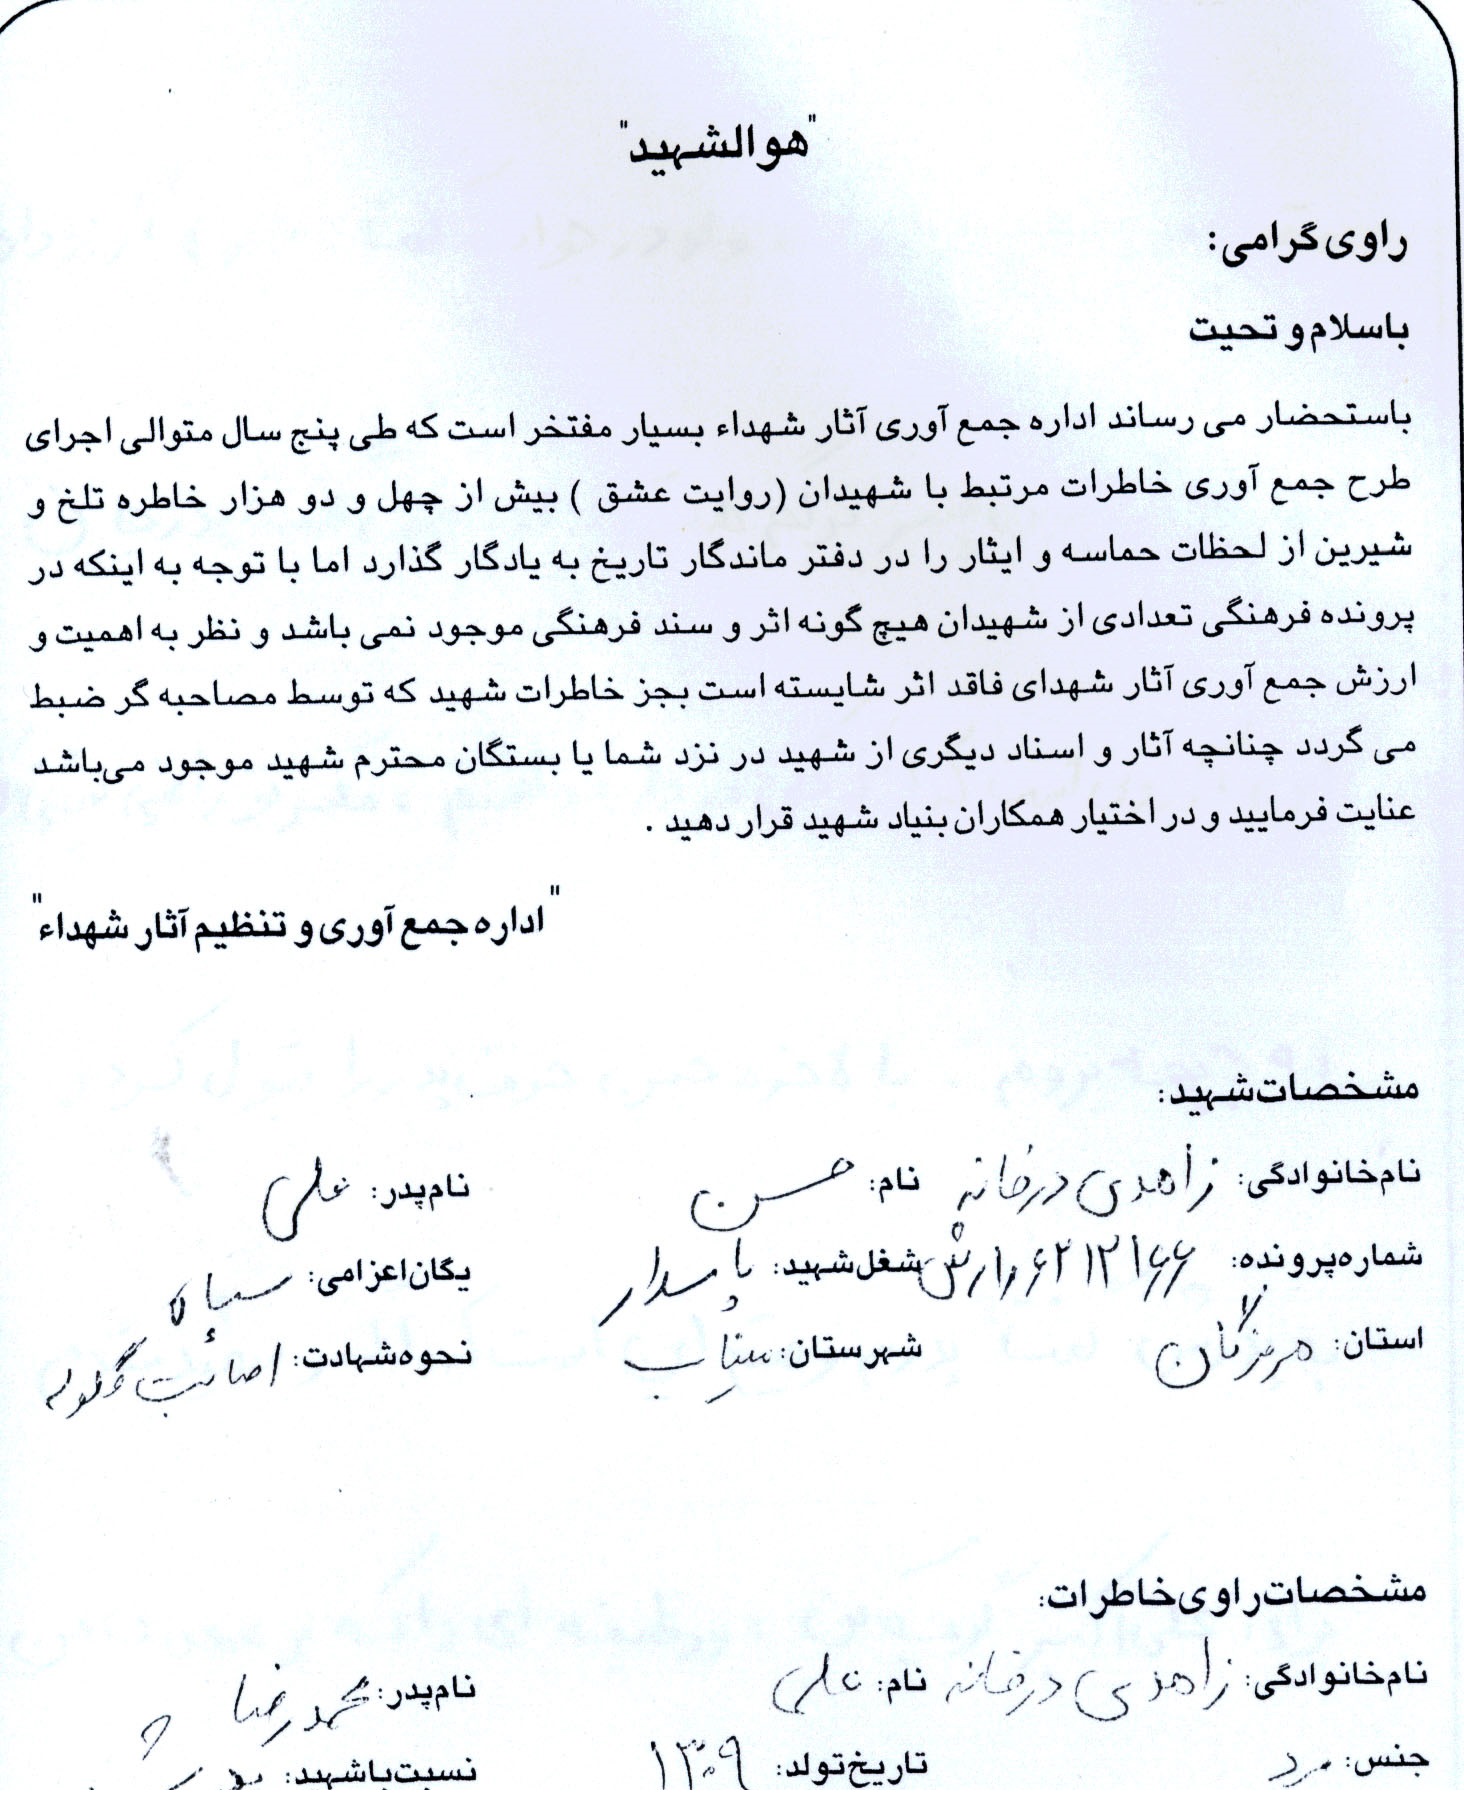 "هوالشهید"
راوی گرامی:
باسلام و تحیت
باستحضار می رساند اداره جمع آوری آثار شهداء بسیار مفتخر است که طی پنج سال متوالی اجرای
طرح جمع آوری خاطرات مرتبط با شهیدان (روایت عشق ) بیش از چهل و دو هزار خاطره تلخ و
شیرین از لحظات حماسه و ایثار را در دفتر ماندگار تاریخ به یادگار گذارد اما با توجه به اینکه در
پرونده فرهنگی تعدادی از شهیدان هیچ گونه اثر و سند فرهنگی موجود نمی باشد و نظر به اهمیت و
ارزش جمع آوری آثار شهدای فاقد اثر شایسته است بجز خاطرات شهید که توسط مصاحبه گر ضبط
می گردد چنانچه آثار و اسناد دیگری از شهید در نزد شما یا بستگان محترم شهید موجود می‌باشد
عنایت فرمایید و در اختیار همکاران بنیاد شهید قرار دهید .
"اداره جمع آوری و تنظیم آثار شهداء"
مشخصات شهید:
نام خانوادگی: زاهدی درخانه نام: حسن نام پدر: علی
شماره پرونده: شغل شهید: پاسدار یگان اعزامی: سپاه
استان: هرمزگان شهرستان: میناب نحوه شهادت: اصابت گلوله
مشخصات راوی خاطرات:
نام خانوادگی: زاهدی درخانه نام: علی نام پدر: محمدرضا
جنس: مرد تاریخ تولد: ۱۳۰۹ نسبت باشهید: